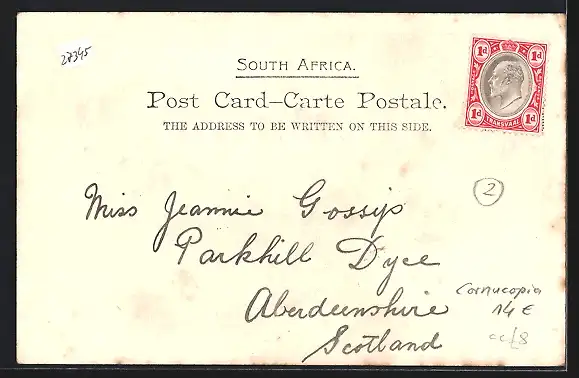 27345
SOUTH AFRICA.
Post Card–Carte Postale.
THE ADDRESS TO BE WRITTEN ON THIS SIDE.
1d 1d
1d TRANSVAAL 1d
2
Miss Jeannie Gossip
Parkhill Dyce
Aberdeenshire
Scotland
Cornucopia
14 €